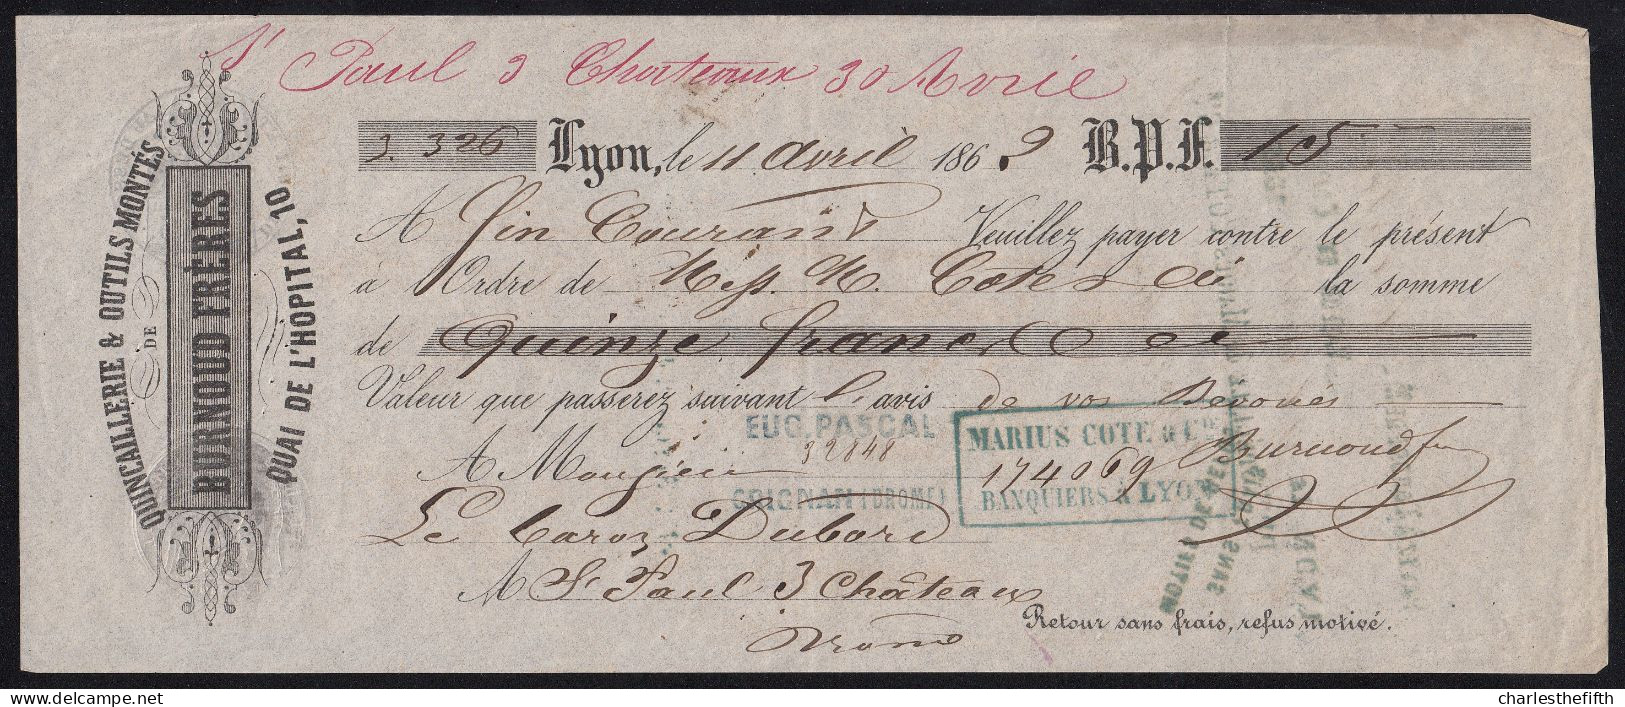 St Paul 3 Chateaux 30 Avril
3.326 Lyon, le 11 Avril 1862 B.P.F. 15
A fin Courant Veuillez payer contre le présent
à l'Ordre de Mess. M. Cote & Cie la somme
de Quinze francs
Valeur que passerez suivant l'avis de vos Dévoués
EUG. PASCAL
32848
GRIGNAN (DROME)
MARIUS COTE & Cie
174069
BANQUIERS À LYON
Burnoud f
A Monsieur
Le Baron Dubord
A St Paul 3 Châteaux
Drome
Retour sans frais, refus motivé.
QUINCAILLERIE & OUTILS MONTÉS
DE
BURNOUD FRÈRES
QUAI DE L'HÔPITAL, 10
charlesthefifth